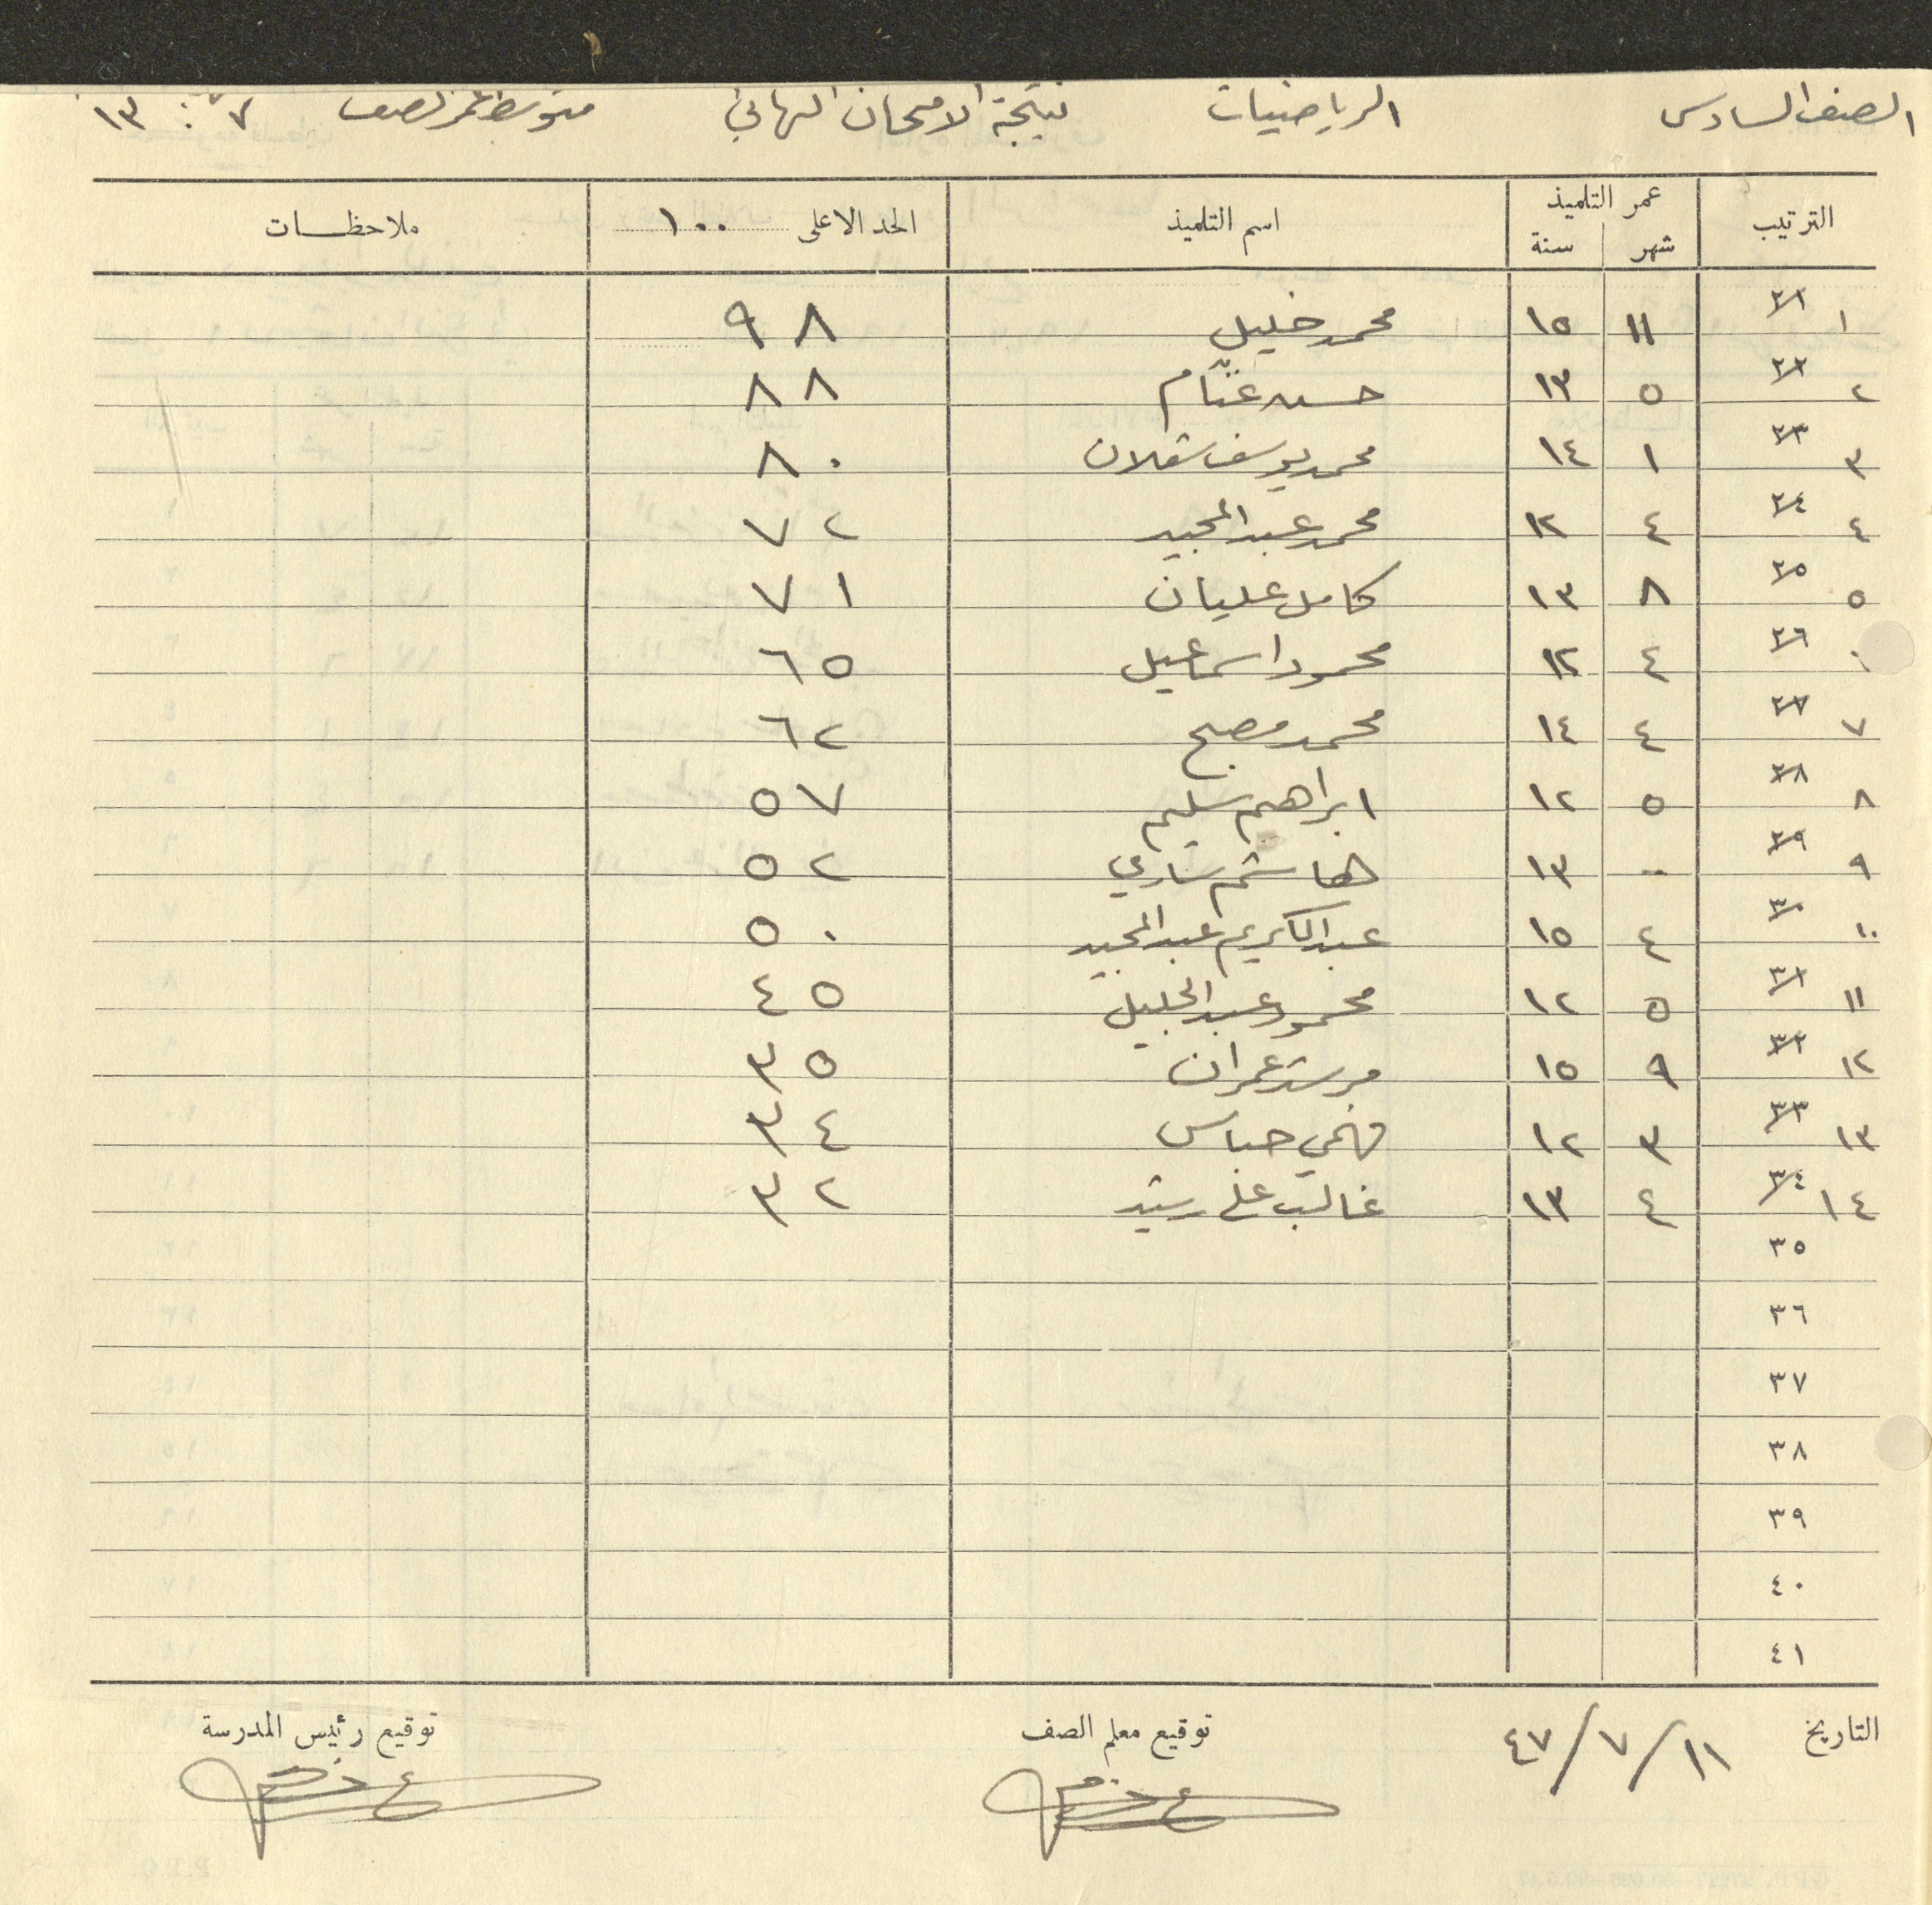 الصف السادس الرياضيات نتيجة الامتحان النهائي متوسط عمر الصف ٧ : ١٣
الترتيب عمر التلميذ اسم التلميذ الحد الاعلى ١٠٠ ملاحظات
شهر سنة
١ ٢١ ١١ ١٥ محمد خليل ٩٨
٢ ٢٢ ٥ ١٣ حسن غنّام ٨٨
٣ ٢٣ ١ ١٤ محمد يوسف ٨٠
٤ ٢٤ ٤ ١٢ محمد عبد المجيد ٧٢
٥ ٢٥ ٨ ١٣ كامل عليان ٧١
٢٦ ٤ ١٢ محمود اسماعيل ٦٥
٧ ٢٧ ٤ ١٤ محمد مصبح ٦٢
٨ ٢٨ ٥ ١٢ ابراهيم سليم ٥٧
٩ ٢٩ - ١٣ هاشم شاري ٥٢
١٠ ٣٠ ٤ ١٥ عبد الكريم عبد المجيد ٥٠
١١ ٣١ ٥ ١٢ محمود عبد الجليل ٤٥
١٢ ٣٢ ٩ ١٥ مرشد عمران ٣٥
١٣ ٣٣ ٣ ١٢ فهمي حباس ٣٤
١٤ ٣٤ ٤ ١٣ غالب علي رشيد ٣٢
٣٥
٣٦
٣٧
٣٨
٣٩
٤٠
٤١
التاريخ ١١/٧/٤٧ توقيع معلم الصف توقيع رئيس المدرسة